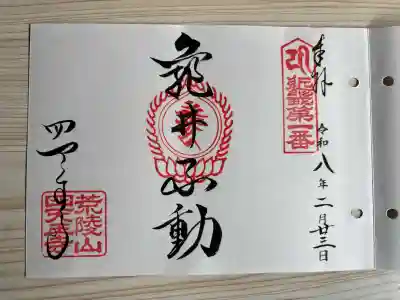 奉拝
近畿第一番
令和八年二月廿三日
亀井不動
四天王寺
荒陵山
四天王寺